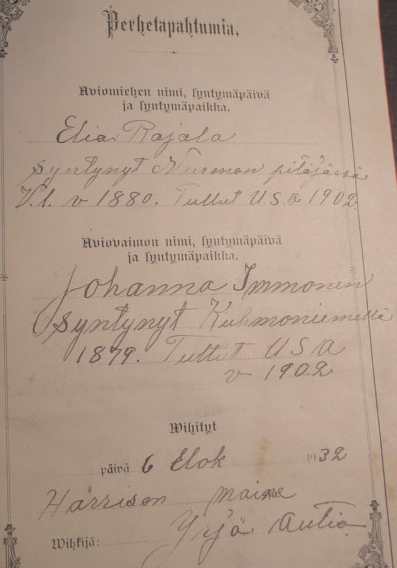 Perhetapahtumia.
Aviomiehen nimi, syntymäpäivä
ja syntymäpaikka.
Elia Rajala
Syntynyt Nurmon pitäjässä
V.l. v 1880. Tullut U.S.a 1902
Aviovaimon nimi, syntymäpäivä
ja syntymäpaikka.
Johanna Immonen
Syntynyt Kuhmoniemellä
1879. Tullut U S A
v 1902
Wihityt
päivä 6 Elok 1932
Harrison Maine
Wihkijä: Yrjö Autio